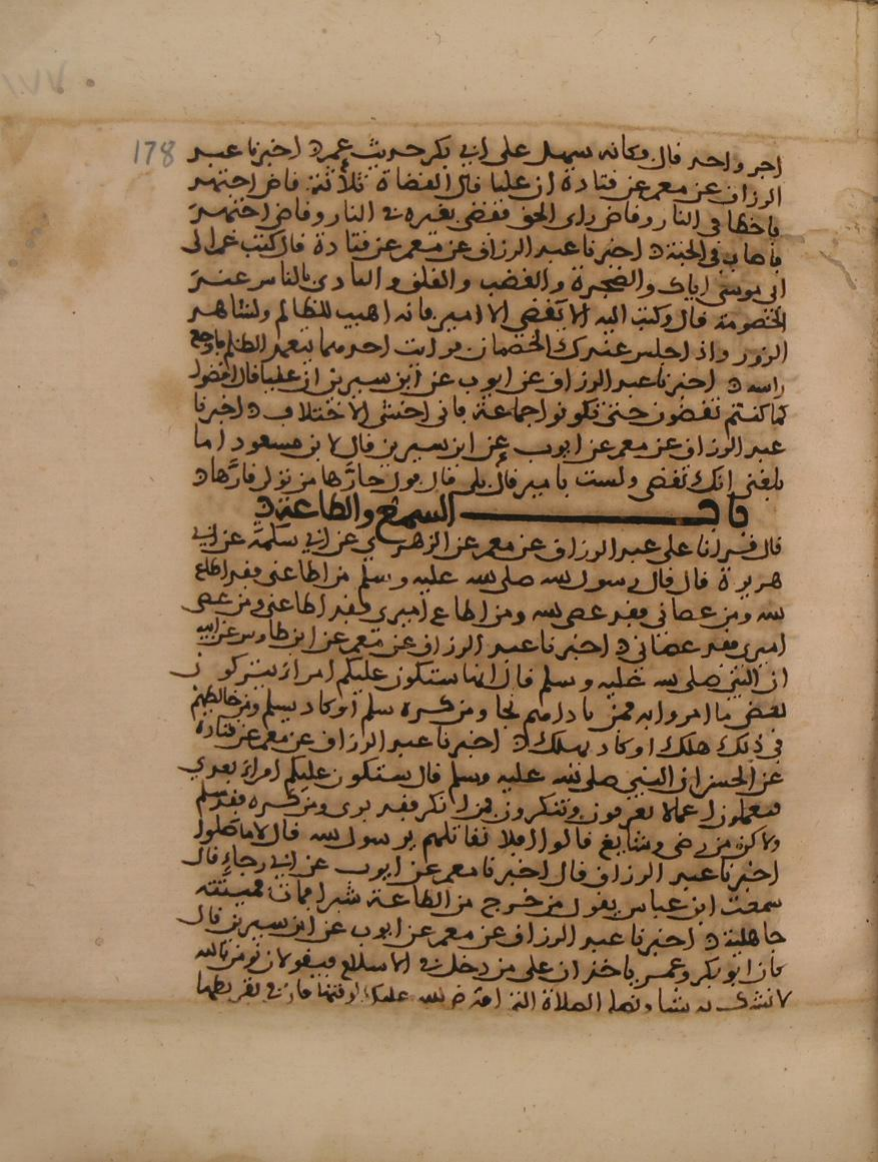 178
اجر واحد قال وكانه سهل على ابي بكر حديث عمر ه اخبرنا عبد
الرزاق عن معمر عن قتادة ان عليا قال القضاة ثلاثة قاض اجتهد
فاخطا في النار وقاض راى الحق فقضى بغيره في النار وقاض اجتهد
فاصاب في الجنة ه اخبرنا عبد الرزاق عن معمر عن قتادة قال كتب عمر الى
ابي موسى اياك والضجرة والغضب والقلق والتاذي بالناس عند
الخصومة قال وكتب اليه الا يقضي الا امير فانه اهيب للظالم ولشاهد
الزور واذا جلس عندك الخصمان فرايت احدهما يتعمد الظلم فاوجع
راسه ه اخبرنا عبد الرزاق عن ايوب عن ابن سيرين ان عليا قال اقضوا
كما كنتم تقضون حتى تكونوا جماعة فاني اخشى الاختلاف ه اخبرنا
عبد الرزاق عن معمر عن ايوب عن ابن سيرين قال لابن مسعود اما
بلغني انك تقضي ولست بامير قال بلى قال فول حارها من تولى قارها ه
باب السمع والطاعة ه
قال قرانا على عبد الرزاق عن معمر عن الزهري عن ابي سلمة عن ابي
هريرة قال قال رسول لله صلى لله عليه وسلم من اطاعني فقد اطاع
لله ومن عصاني فقد عصى لله ومن اطاع اميري فقد اطاعني ومن عصى
اميري فقد عصاني ه اخبرنا عبد الرزاق عن معمر عن ابن طاوس عن ابيه
ان النبي صلى لله عليه وسلم قال انها ستكون عليكم امراء يتركون
بعض ما امروا به فمن ناداهم نجا ومن كره سلم او كاد يسلم ومن خالطهم
في ذلك هلك او كاد يهلك ه اخبرنا عبد الرزاق عن معمر عن قتادة
عن الحسن ان النبي صلى لله عليه وسلم قال ستكون عليكم امراء بعدي
فيعملون اعمالا تعرفون وتنكرون فمن انكر فقد برى ومن كره فقد سلم
ولاكن من رضي وشايع قالوا افلا نقاتلهم يرسول لله قال لا ما صلوا
اخبرنا عبد الرزاق قال اخبرنا معمر عن ايوب عن ابي رجاء قال
سمعت ابن عباس يقول من خرج من الطاعة شبرا فمات فميتته
جاهلية ه اخبرنا عبد الرزاق عن معمر عن ايوب عن ابن سيرين قال
كان ابو بكر وعمر ياخذان على من دخل في الاسلام فيقولان تومن بالله
لا تشرك به شيا وتصلي الصلاة التي افترض لله عليك لوقتها فان في تفريطها